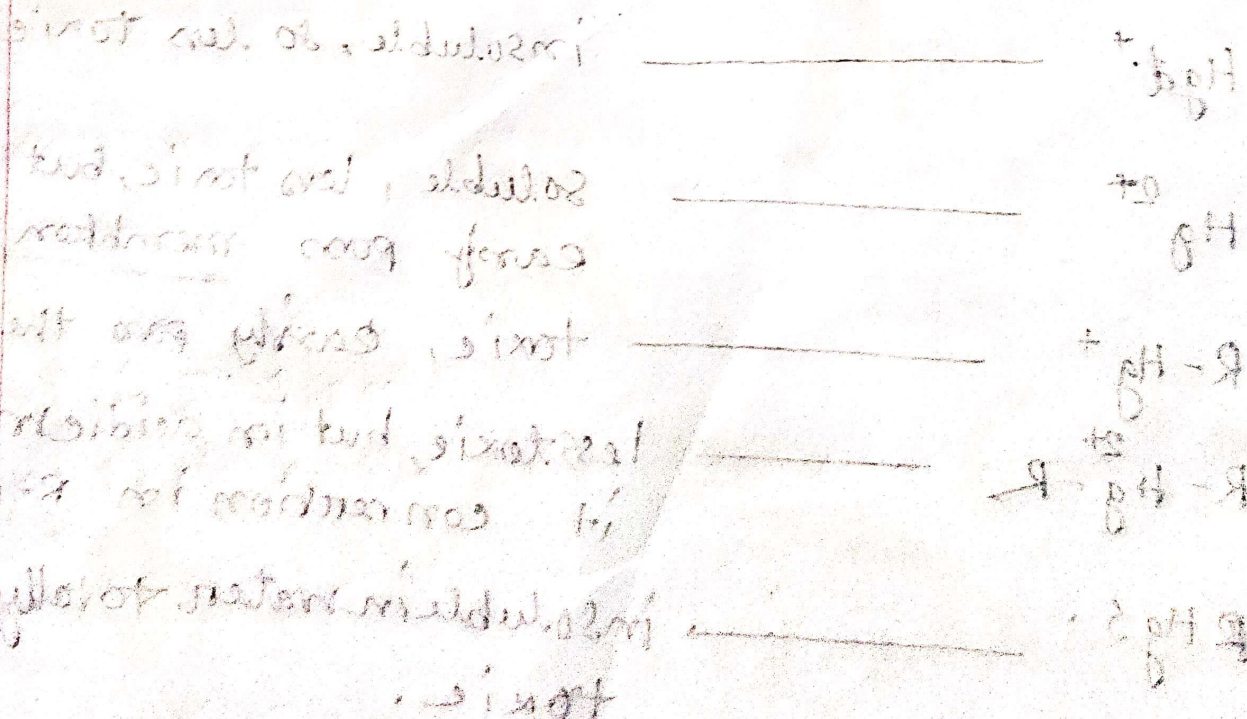 Hg2+ insoluble, so less toxic
Hg 2+ soluble, less toxic, but
easily pass membran
R - Hg+ toxic, easily pass the
R - Hg 2+ - R less toxic, but in
it conversion in
HgS insoluble in water, totally
toxic.